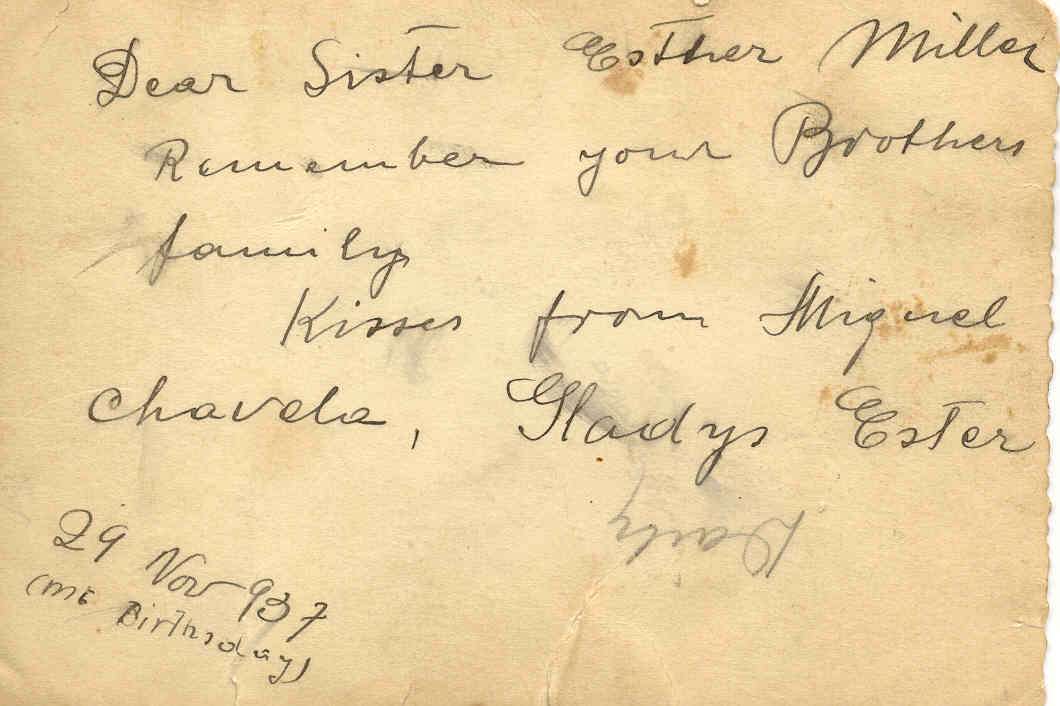 Dear Sister Esther Miller
Remember your Brothers
family
Kisses from Miguel
Chavela, Gladys Ester
29 Nov 937
(ME Birthsday)